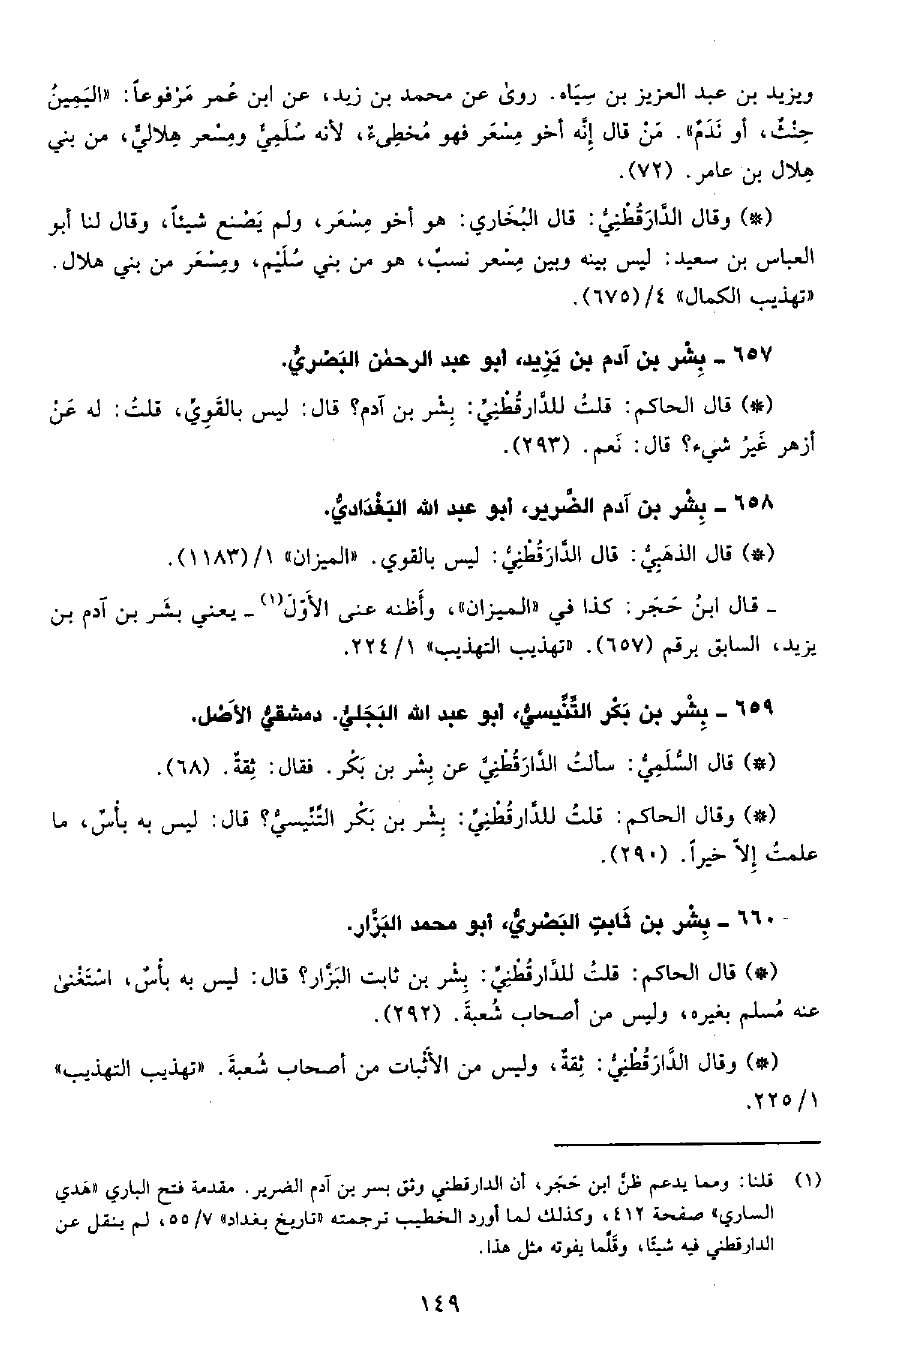 ويزيد بن عبد العزيز بن سِيَاه. روىٰ عن محمد بن زيد، عن ابن عُمر مَرْفوعاً: «اليَمِينُ
حِنْثٌ، أو نَدَمٌ». مَنْ قال إنَّه أخو مِسْعَر فهو مُخطِىءٌ، لأنه سُلَمِيٌّ ومِسْعر هِلاليٌّ، من بني
هِلال بن عامر. (٧٢).
(*) وقال الدَّارَقُطْنِيُّ: قال البُخَاري: هو أخو مِسْعَر، ولم يَصْنع شيئاً، وقال لنا أبو
العباس بن سعيد: ليس بينه وبين مِسْعر نسبٌ، هو من بني سُلَيْم، ومِسْعَر من بني هلال.
«تهذيب الكمال» ٤/(٦٧٥).
٦٥٧ ـ بِشْر بن آدم بن يَزِيد، أبو عبد الرحمٰن البَصْريُّ.
(*) قال الحاكم: قلتُ للدَّارقُطْنِيِّ: بِشْر بن آدم؟ قال: ليس بالقَوِيِّ، قلتُ: له عَنْ
أزهر غَيرُ شيء؟ قال: نَعم. (٢٩٣).
٦٥٨ ـ بِشْر بن آدم الضَّرير، أبو عبد الله البَغْدَاديُّ.
(*) قال الذهَبِيُّ: قال الدَّارَقُطْنِيُّ: ليس بالقوي. «الميزان» ١/(١١٨٣).
ـ قال ابنُ حَجَر: كذا في «الميزان»، وأظنه عنى الأَوّلَ(١) ـ يعني بشَر بن آدم بن
يزيد، السابق برقم (٦٥٧). «تهذيب التهذيب» ١/٢٢٤.
٦٥٩ ـ بِشْر بن بَكْر التِّنِّيسيُّ، أبو عبد الله البَجَليُّ. دمشقيُّ الأَصْل.
(*) قال السُّلَمِيُّ: سألتُ الدَّارَقُطْنِيَّ عن بِشْر بن بَكْر. فقال: ثِقةٌ. (٦٨).
(*) وقال الحاكم: قلتُ للدَّارقُطْنِيِّ: بِشْر بن بَكْر التِّنِّيسيُّ؟ قال: ليس به بأْسٌ، ما
علمتُ إِلاَّ خيراً. (٢٩٠).
٦٦٠ ـ بِشْر بن ثَابتٍ البَصْريُّ، أبو محمد البَزَّار.
(*) قال الحاكم: قلتُ للدَّارقُطْنِيِّ: بِشْر بن ثابت البَزَّار؟ قال: ليس به بأْسٌ، اسْتَغْنىٰ
عنه مُسلم بغيره، وليس من أصحاب شُعبةَ. (٢٩٢).
(*) وقال الدَّارَقُطْنِيُّ: ثِقةٌ، وليس من الأَثْبات من أصحاب شُعبةَ. «تهذيب التهذيب»
١/٢٢٥.
(١) قلنا: ومما يدعم ظنَّ ابن حَجَر، أن الدارقطني وثق بسر بن آدم الضرير. مقدمة فتح الباري «هَدي
الساري» صفحة ٤١٢، وكذلك لما أورد الخطيب ترجمته «تاريخ بغداد» ٧/٥٥، لم ينقل عن
الدارقطني فيه شيئًا، وقَلَّما يفوته مثل هذا.
١٤٩